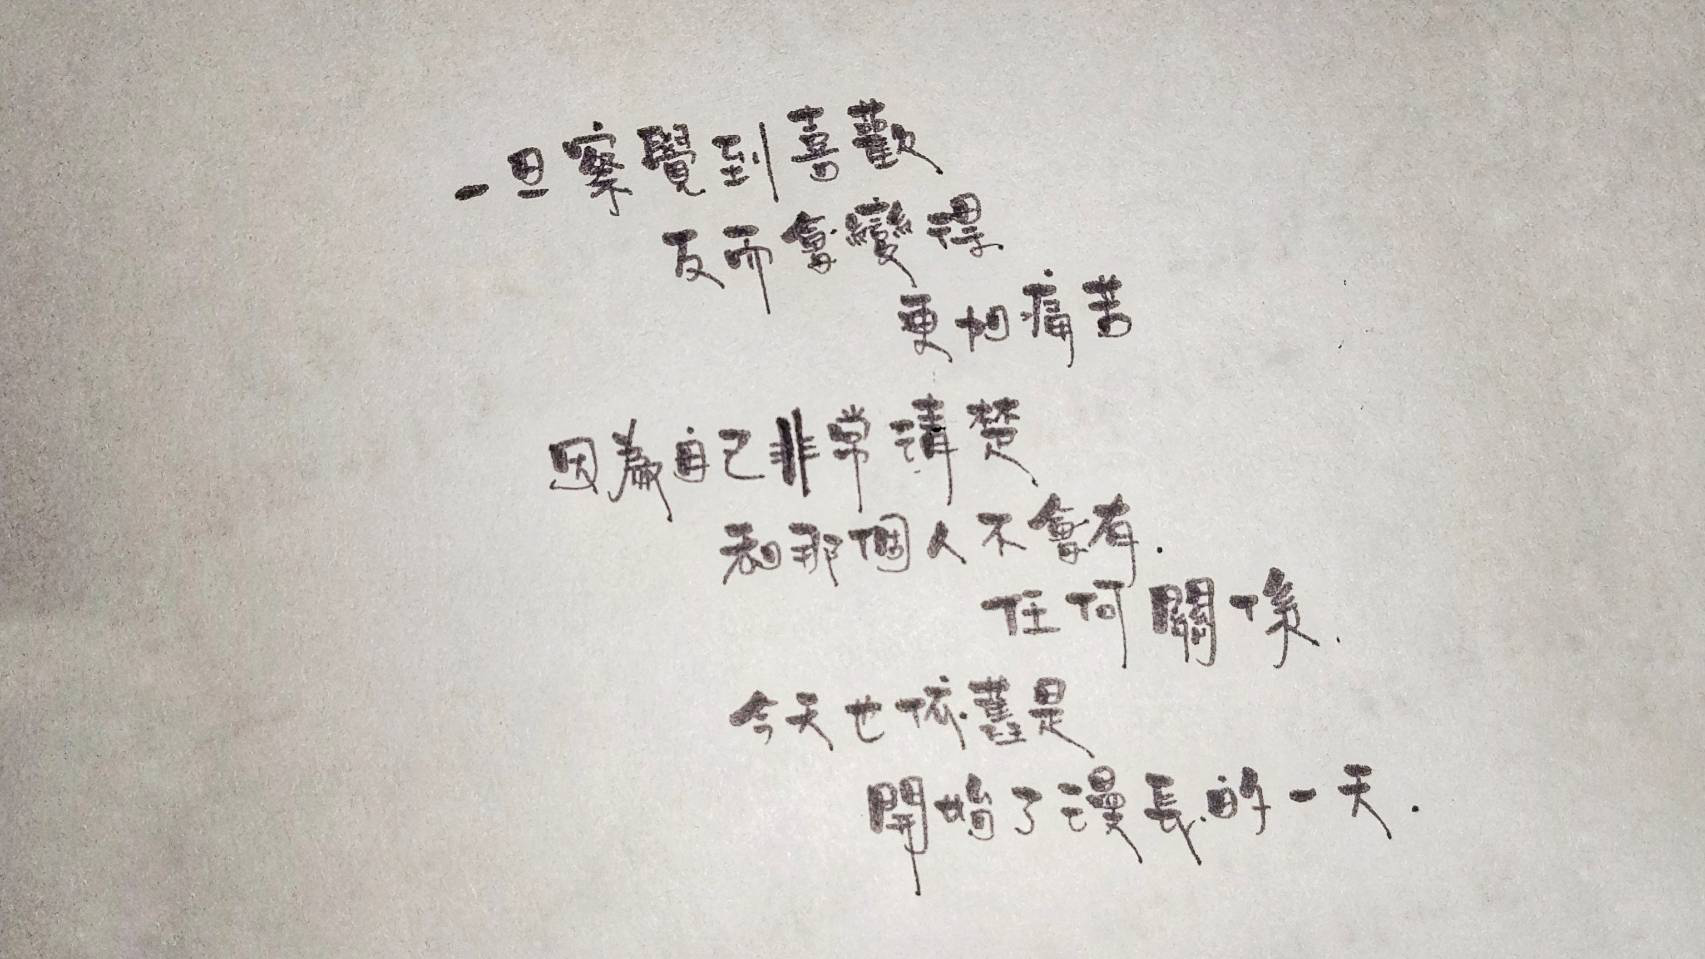 一旦察覺到喜歡
反而會變得
更怕痛苦
因為自己非常清楚
和那個人不會有.
任何關係.
今天也依舊是
開始了漫長的一天.